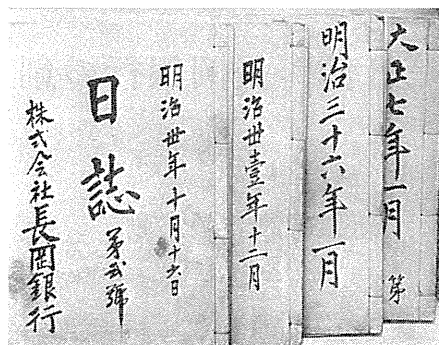 大正七年一月
第
明治三十六年一月
明治卅壹年十二月
明治卅年十月十六日
日誌
第弐號
株式会社長岡銀行